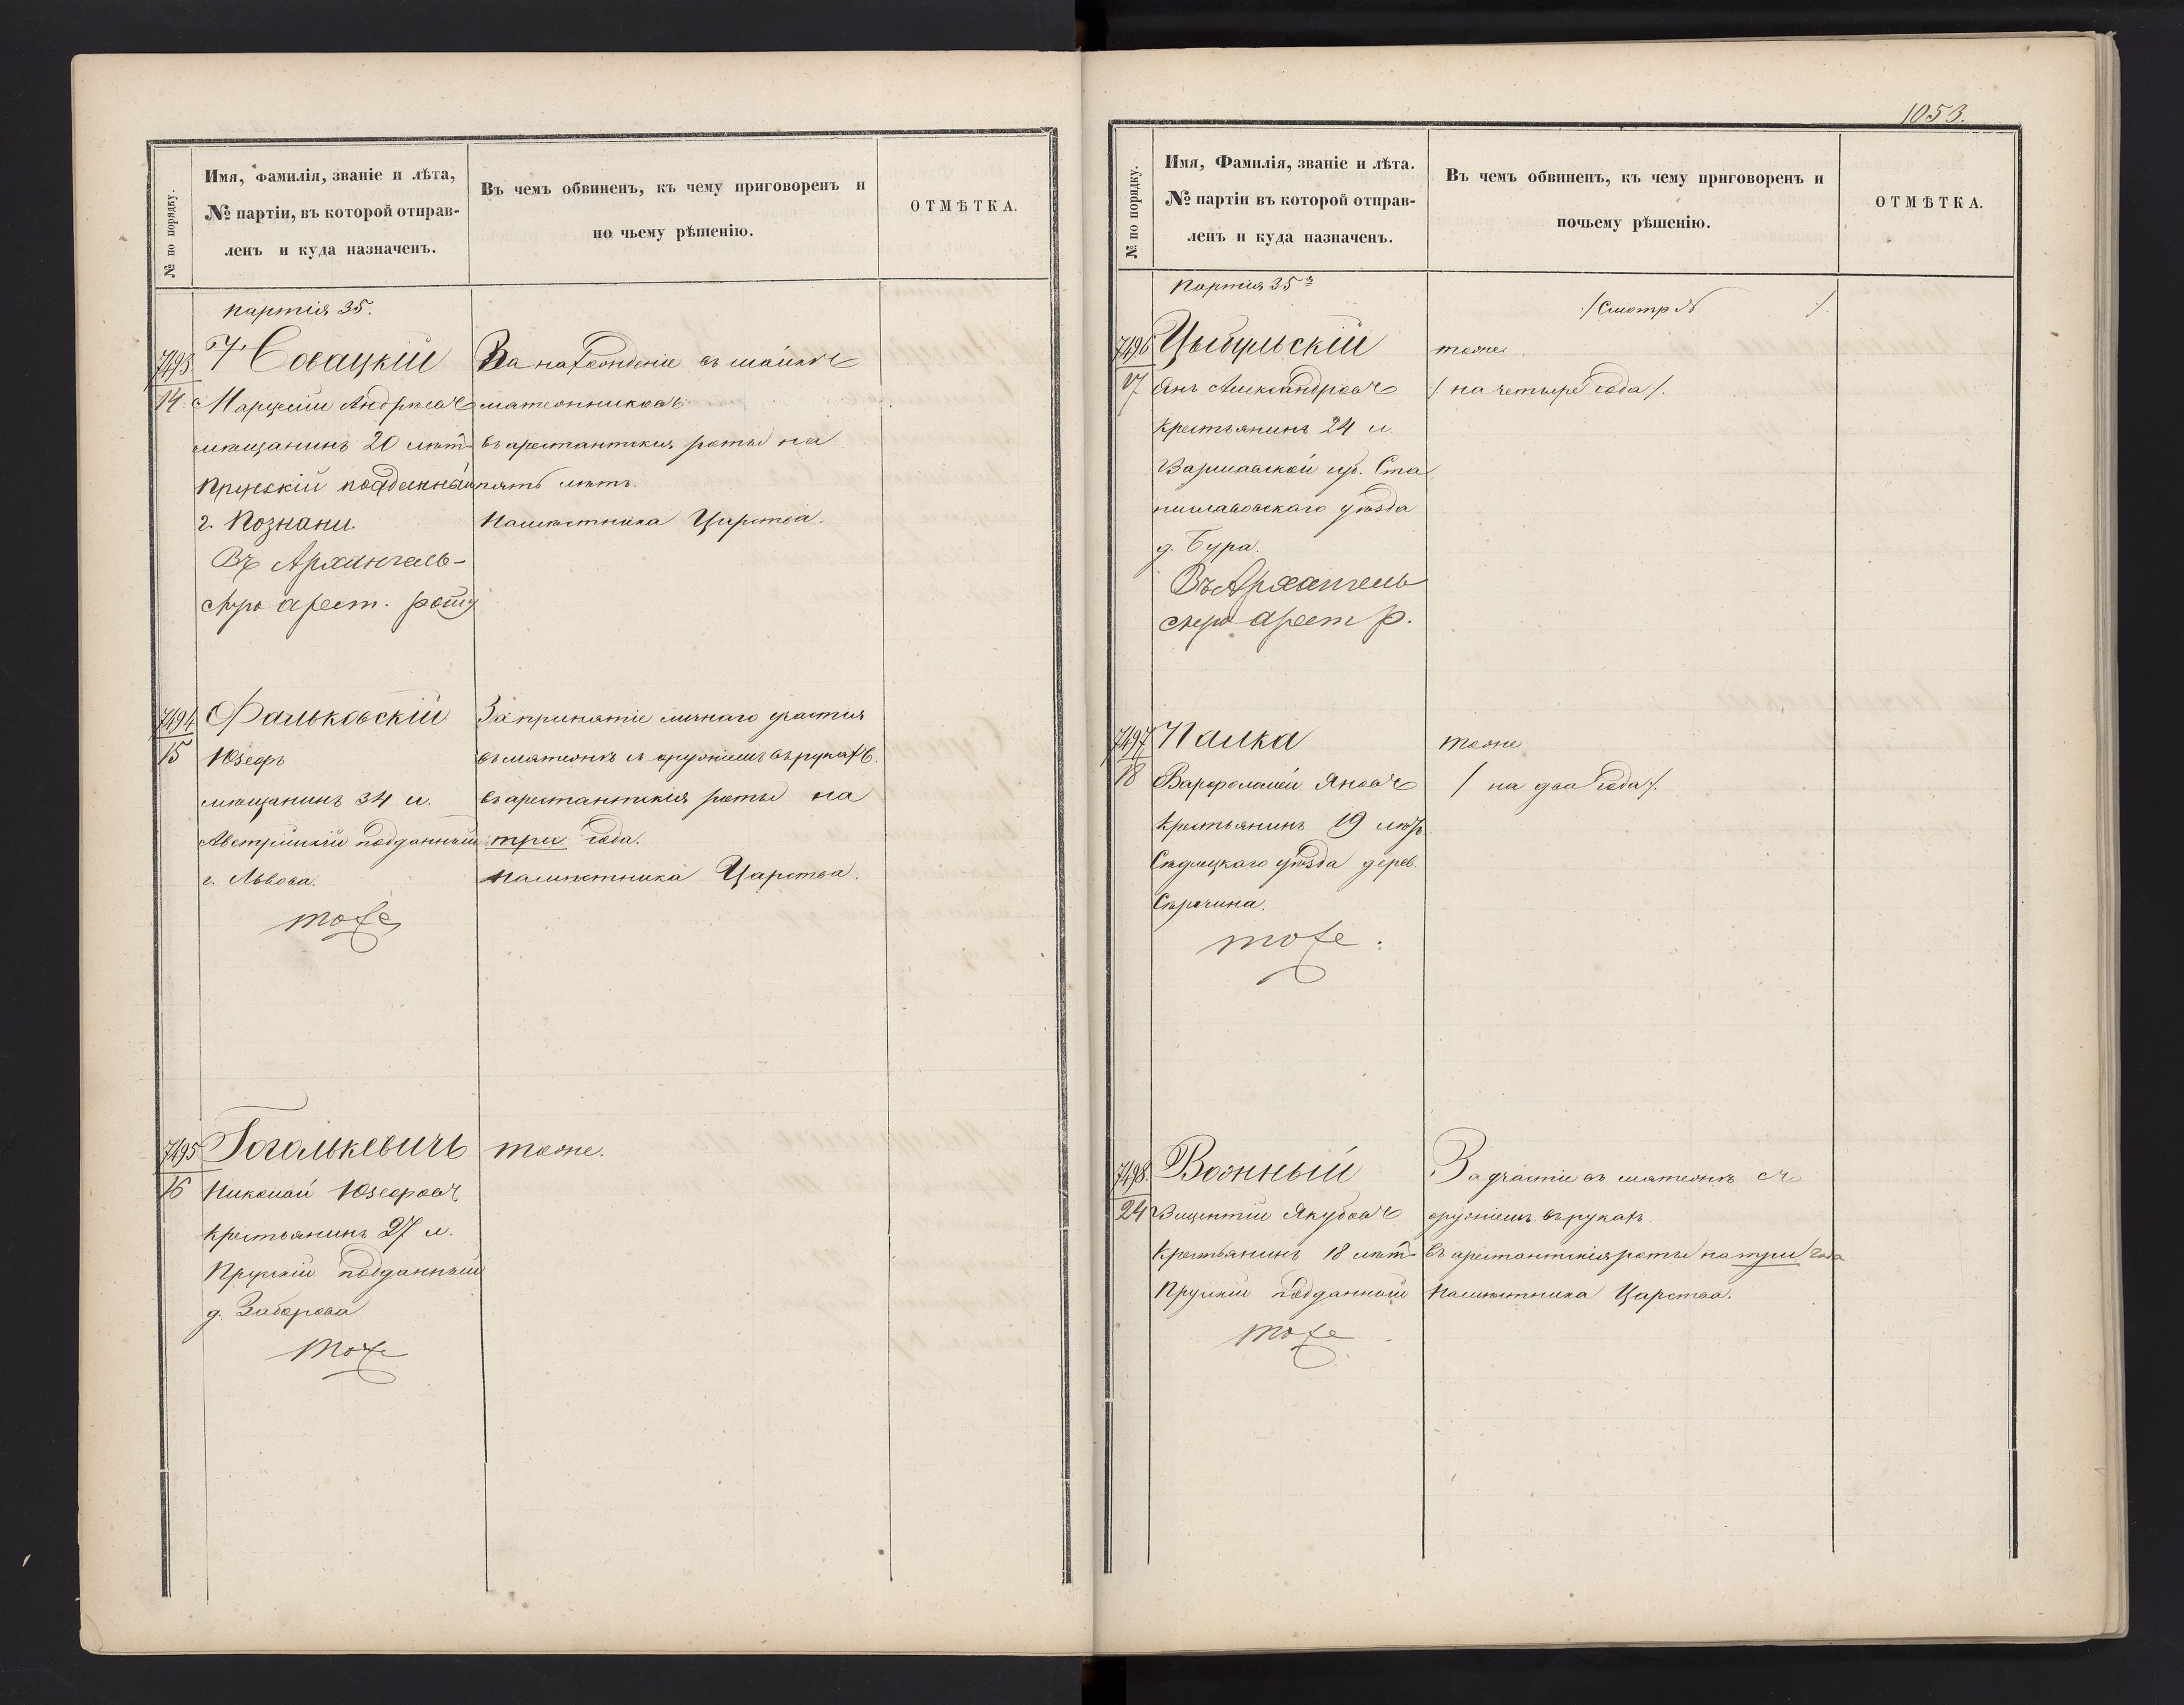 № по порядку.
Имя, Фамилія, званіе и лѣта,
№ партіи, въ которой отправ-
ленъ и куда назначенъ.
Въ чемъ обвиненъ, къ чему приговоренъ и
по чьему рѣшенію.
ОТМѢТКА.
партія 35.
7493
14
Марцелій Андржеев
мѣщанинъ 20 лѣтъ
Прускій подданный
г. Познани
Въ Архангель-
скую арест. роту
За нахожденіе въ шайкѣ
мятежниковъ
въ арестантскія роты на
пять лѣтъ.
Намѣстника Царства.
7494
15
Фальковскій
Юзефъ
мѣщанинъ 34 л.
Австрійскій подданный
г. Львова.
тоже
За принятіе личнаго участія
въ мятежѣ съ оружіемъ въ рукахъ.
въ арестантскія роты на
три года.
Намѣстника Царства.
7495
16
Гоголькевичъ
Николай Юзефов
крестьянинъ 27 л.
Прускій подданный
д. Заборова
тоже
тоже.
1053.
№ по порядку.
Имя, Фамилія, званіе и лѣта.
№ партіи въ которой отправ-
ленъ и куда назначенъ.
Въ чемъ обвиненъ, къ чему приговоренъ и
почьему рѣшенію.
ОТМѢТКА.
партия 35
/Смотр №
/.
7496
17
Цыбульскій
Янъ Александров
крестьянинъ 24 л.
Варшавской губ. Ста
ниславовскаго уѣзда
д. Бура.
Въ Архангель
скую арест р.
тоже
/ на четыре года /.
7497
18
Палка
Варфоломей Янов
крестьянинъ 19 лѣтъ
Сѣдлецкаго уѣзда дерев.
тоже.
тоже
/ на два года /.
7498.
24
Вожный
Вицентій Якубов
крестьянинъ 18 лѣтъ
Прускій подданный
тоже
За участіе въ мятежѣ съ
оружіемъ въ рукахъ.
въ арестантскія роты на три года
Намѣстника Царства.